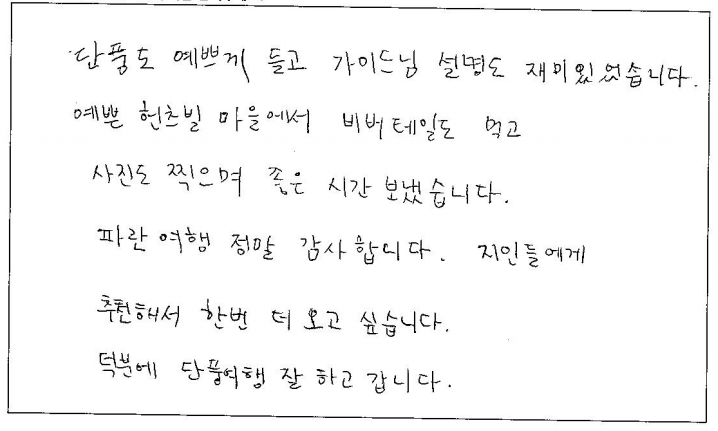 단풍도 예쁘게 들고 가이드님 설명도 재미있었습니다.
예쁜 헌츠빌 마을에서 비버테일도 먹고
사진도 찍으며 좋은 시간 보냈습니다.
파란여행 정말 감사합니다. 지인들에게
추천해서 한번 더 오고 싶습니다.
덕분에 단풍여행 잘 하고 갑니다.